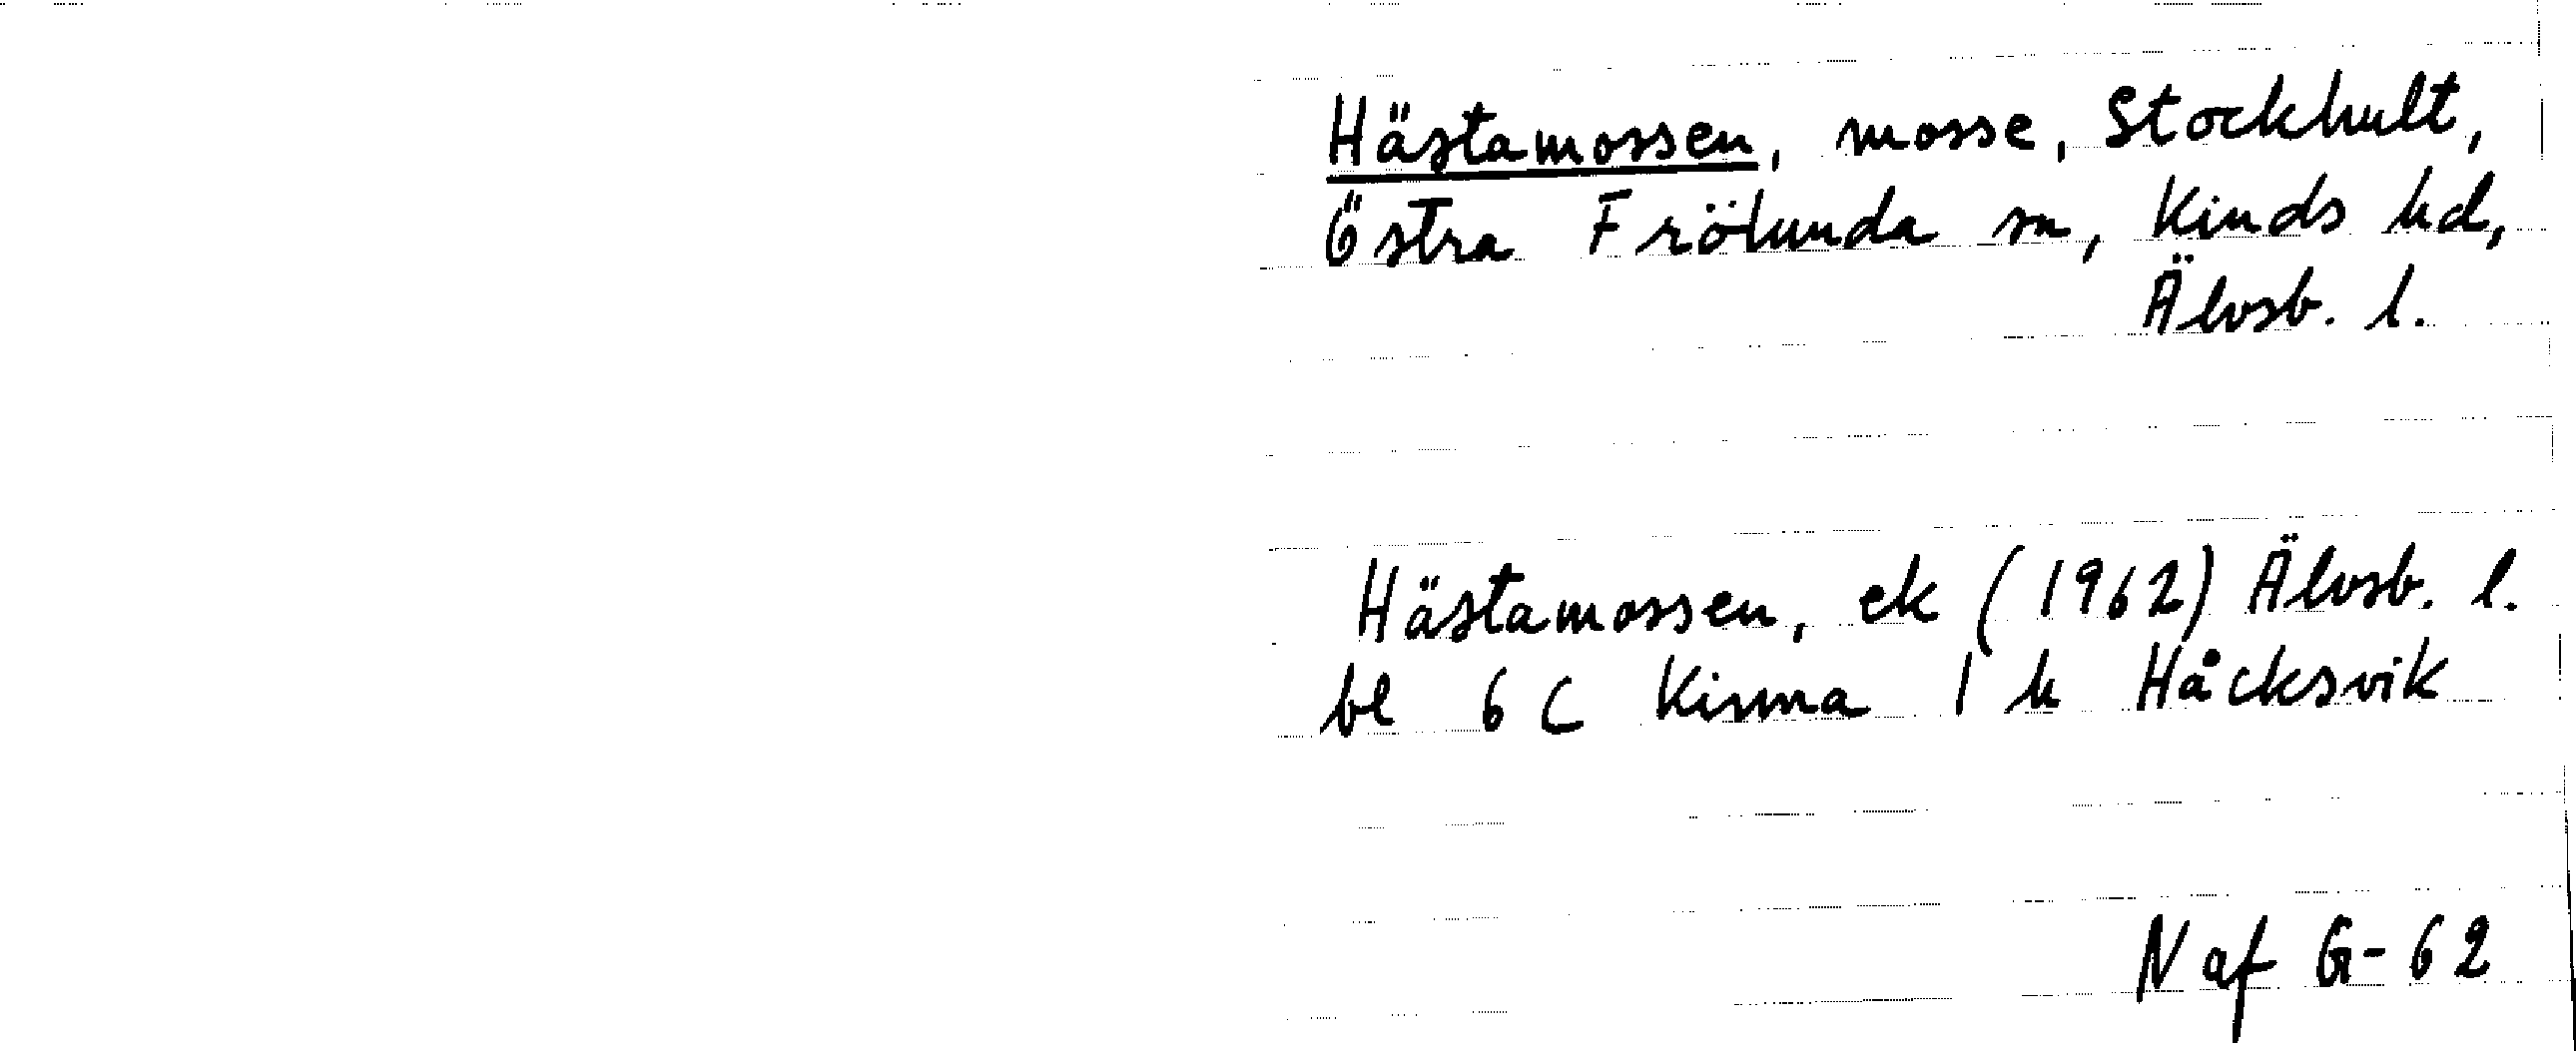 Hästamossen, mosse, Stockhult,
Östra Frölunda sn, Kinds hd,
Älvsb. l.
Hästamossen, ek (1962) Älvsb. l.
bl 6 C Kinna 1 h Håcksvik
Naf G-62